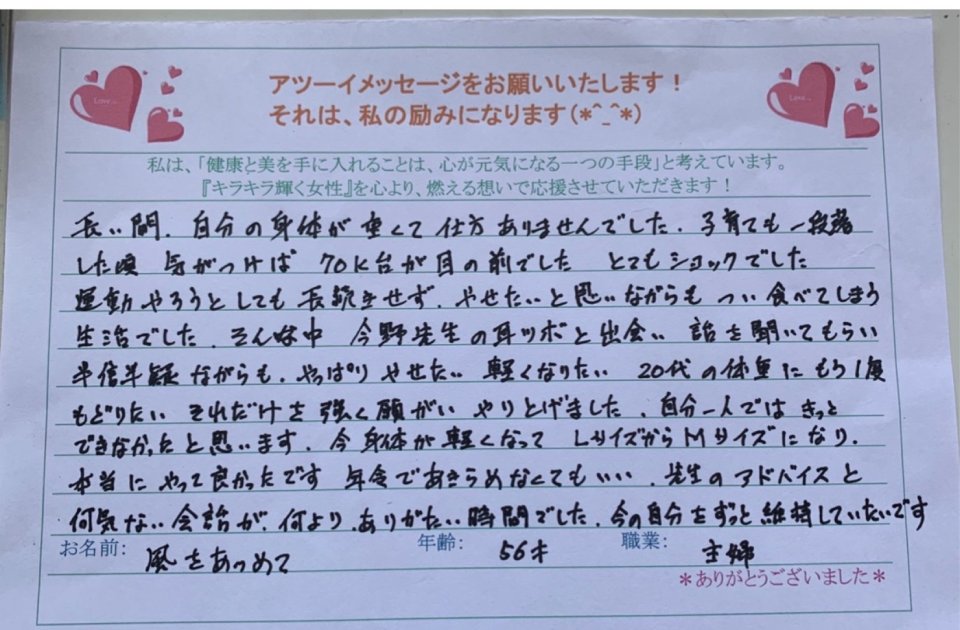 アツーイメッセージをお願いいたします！
それは、私の励みになります(*^_^*)
Love...
Love...
私は、「健康と美を手に入れることは、心が元気になる一つの手段」と考えています。
『キラキラ輝く女性』を心より、燃える想いで応援させていただきます！
長い間、自分の身体が重くて仕方ありませんでした、子育ても一段落
した頃 気がつけば 70K台が目の前でした とてもショックでした
運動やろうとしても長続きせず、やせたいと思いながらも つい食べてしまう
生活でした、そんな中 今野先生の耳ツボと出会い 話を聞いてもらい
半信半疑ながらも、やっぱり やせたい 軽くなりたい 20代の体重にもう1度
もどりたい それだけを強く願がい やりとげました、自分一人ではきっと
できなかったと思います、今身体が軽くなって LサイズからMサイズになり、
本当にやって良かったです 年令であきらめなくてもいい、先生のアドバイスと
何気ない会話が、何より、ありがたい時間でした、今の自分をずっと維持していたいです
お名前: 風をあつめて 年齢: 56才 職業: 主婦
＊ありがとうございました＊